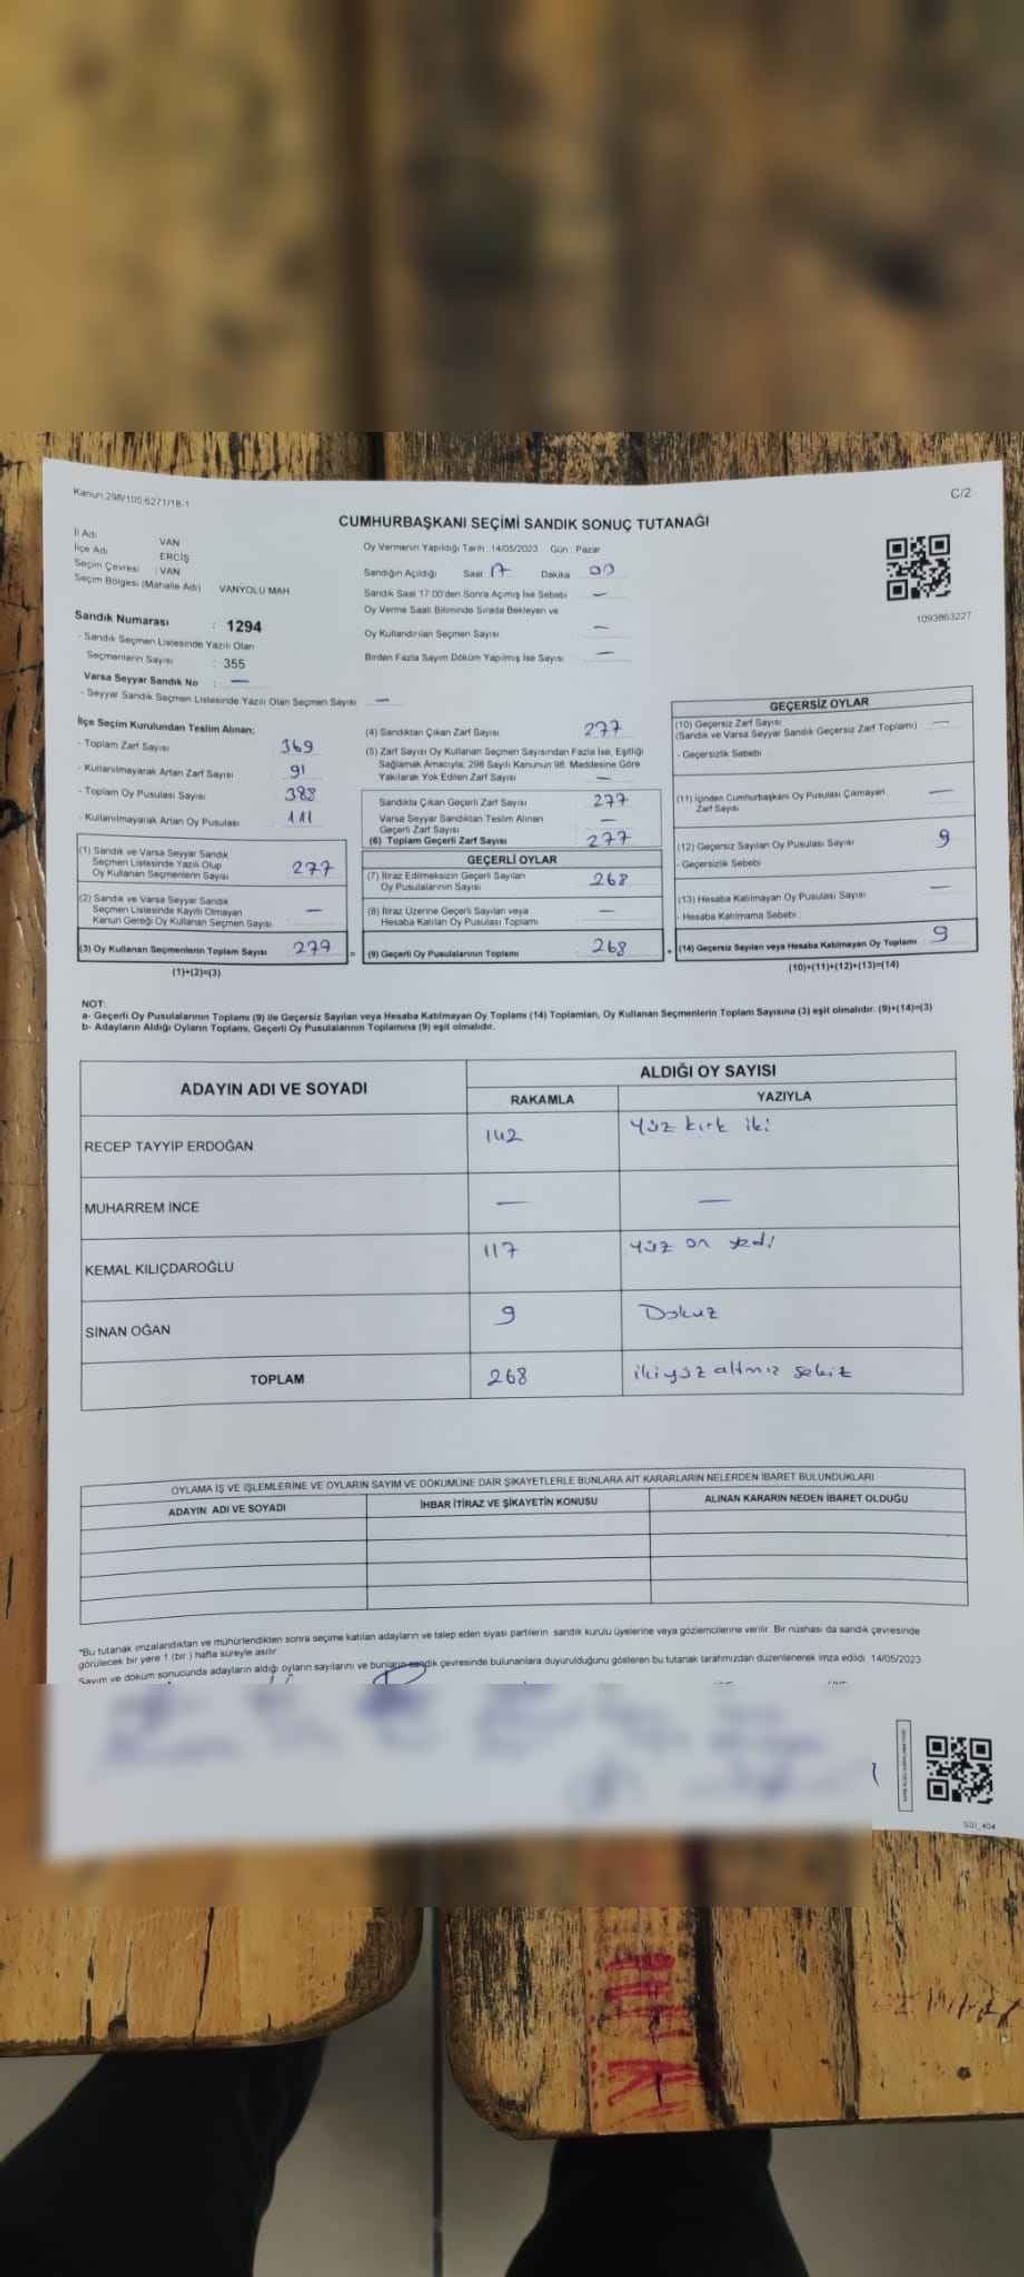 Kanun:298/105,6271/18-1
C/2
CUMHURBAŞKANI SEÇİMİ SANDIK SONUÇ TUTANAĞI
İl Adı : VAN
İlçe Adı : ERCİŞ
Seçim Çevresi : VAN
Seçim Bölgesi (Mahalle Adı) : VANYOLU MAH.
Oy Vermenin Yapıldığı Tarih : 14/05/2023 Gün : Pazar
Sandığın Açıldığı Saat 17 Dakika 00
Sandık Saat 17:00'den Sonra Açılmış İse Sebebi —
Oy Verme Saati Bitiminde Sırada Bekleyen ve
Oy Kullandırılan Seçmen Sayısı —
Birden Fazla Sayım Döküm Yapılmış İse Sayısı —
1093863227
Sandık Numarası : 1294
- Sandık Seçmen Listesinde Yazılı Olan
Seçmenlerin Sayısı : 355
Varsa Seyyar Sandık No : —
- Seyyar Sandık Seçmen Listesinde Yazılı Olan Seçmen Sayısı —
İlçe Seçim Kurulundan Teslim Alınan:
- Toplam Zarf Sayısı 369
- Kullanılmayarak Artan Zarf Sayısı 91
- Toplam Oy Pusulası Sayısı 388
- Kullanılmayarak Artan Oy Pusulası 111
(1) Sandık ve Varsa Seyyar Sandık
Seçmen Listesinde Yazılı Olup
Oy Kullanan Seçmenlerin Sayısı 277
(2) Sandık ve Varsa Seyyar Sandık
Seçmen Listesinde Kayıtlı Olmayan
Kanun Gereği Oy Kullanan Seçmen Sayısı —
(3) Oy Kullanan Seçmenlerin Toplam Sayısı 277
(1)+(2)=(3)
(4) Sandıktan Çıkan Zarf Sayısı 277
(5) Zarf Sayısı Oy Kullanan Seçmen Sayısından Fazla İse, Eşitliği
Sağlamak Amacıyla; 298 Sayılı Kanunun 98. Maddesine Göre
Yakılarak Yok Edilen Zarf Sayısı —
Sandıkta Çıkan Geçerli Zarf Sayısı 277
Varsa Seyyar Sandıktan Teslim Alınan
Geçerli Zarf Sayısı —
(6) Toplam Geçerli Zarf Sayısı 277
GEÇERLİ OYLAR
(7) İtiraz Edilmeksizin Geçerli Sayılan
Oy Pusulalarının Sayısı 268
(8) İtiraz Üzerine Geçerli Sayılan veya
Hesaba Katılan Oy Pusulası Toplamı —
(9) Geçerli Oy Pusulalarının Toplamı 268
GEÇERSİZ OYLAR
(10) Geçersiz Zarf Sayısı —
(Sandık ve Varsa Seyyar Sandık Geçersiz Zarf Toplamı)
- Geçersizlik Sebebi
(11) İçinden Cumhurbaşkanı Oy Pusulası Çıkmayan
Zarf Sayısı —
(12) Geçersiz Sayılan Oy Pusulası Sayısı 9
- Geçersizlik Sebebi
(13) Hesaba Katılmayan Oy Pusulası Sayısı —
- Hesaba Katılmama Sebebi
(14) Geçersiz Sayılan veya Hesaba Katılmayan Oy Toplamı 9
(10)+(11)+(12)+(13)=(14)
NOT:
a- Geçerli Oy Pusulalarının Toplamı (9) ile Geçersiz Sayılan veya Hesaba Katılmayan Oy Toplamı (14) Toplamları, Oy Kullanan Seçmenlerin Toplam Sayısına (3) eşit olmalıdır. (9)+(14)=(3)
b- Adayların Aldığı Oyların Toplamı, Geçerli Oy Pusulalarının Toplamına (9) eşit olmalıdır.
ADAYIN ADI VE SOYADI
ALDIĞI OY SAYISI
RAKAMLA YAZIYLA
RECEP TAYYİP ERDOĞAN 142 Yüz kırk iki
MUHARREM İNCE — —
KEMAL KILIÇDAROĞLU 117 Yüz on yedi
SİNAN OĞAN 9 Dokuz
TOPLAM 268 ikiyüz altmız sekiz
OYLAMA İŞ VE İŞLEMLERİNE VE OYLARIN SAYIM VE DÖKÜMÜNE DAİR ŞİKAYETLERLE BUNLARA AİT KARARLARIN NELERDEN İBARET BULUNDUKLARI
ADAYIN ADI VE SOYADI İHBAR İTİRAZ VE ŞİKAYETİN KONUSU ALINAN KARARIN NEDEN İBARET OLDUĞU
*Bu tutanak imzalandıktan ve mühürlendikten sonra seçime katılan adayların ve talep eden siyasi partilerin sandık kurulu üyelerine veya gözlemcilerine verilir. Bir nüshası da sandık çevresinde
görülecek bir yere 1 (bir ) hafta süreyle asılır.
Sayım ve döküm sonucunda adayların aldığı oyların sayılarını ve bunların sandık çevresinde bulunanlara duyurulduğunu gösteren bu tutanak tarafımızdan düzenlenerek imza edildi. 14/05/2023